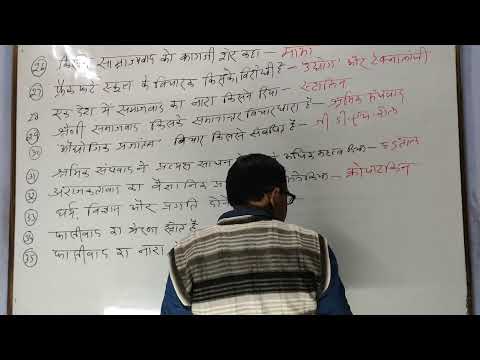 (26) किसने साम्राज्यवाद को कागजी शेर कहा - माओ
(27) फ्रैंकफर्ट स्कूल के विचारक किसके विरोधी हैं - उद्योग और टेक्नालॉजी
28 एक देश में समाजवाद का नारा किसने दिया - स्टालिन
(29) श्रेणी समाजवाद किसके समानान्तर विचारधारा है - श्रमिक संघवाद
विचार किससे संबंधित है - जी डी एच कोल
(31) श्रमिक संघवाद ने प्रत्यक्ष साधन - हड़ताल
(32) अराजकतावाद का वैज्ञानिक - क्रोपाटकिन
(33) धर्म, विज्ञान और प्रगति
(34) फासीवाद का प्रेरणा स्रोत है
(35) फासीवाद का नारा